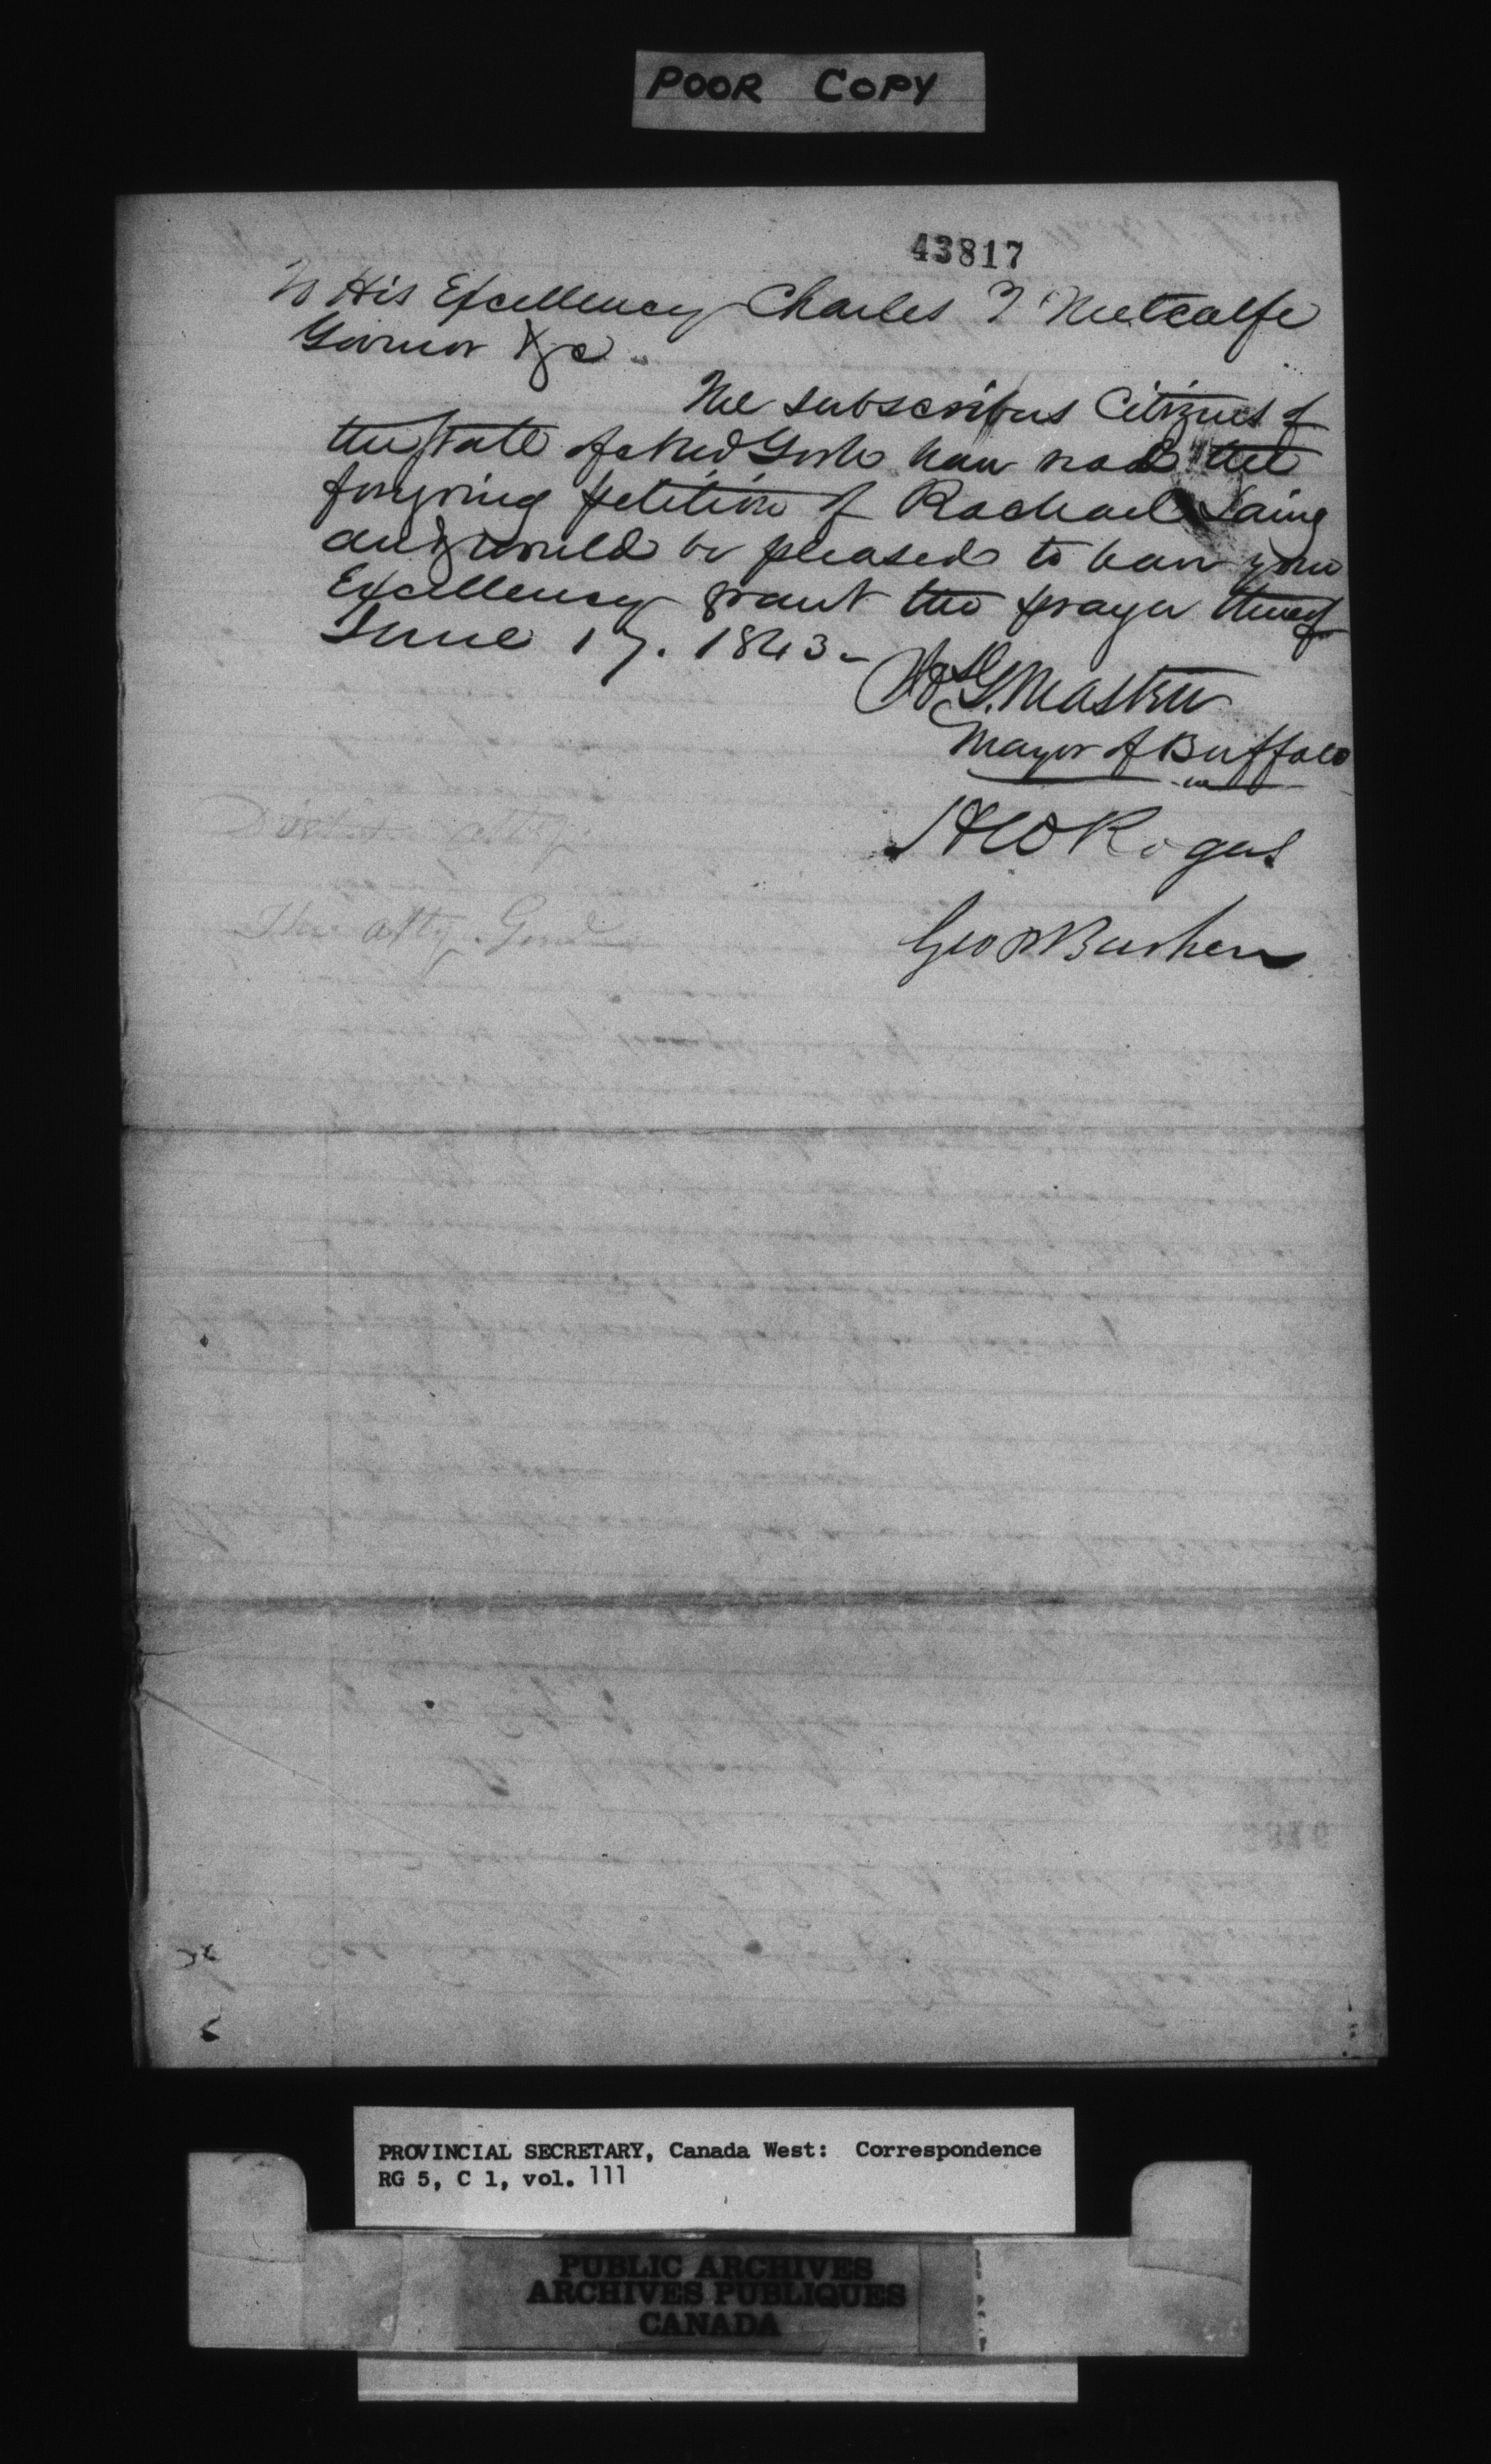 POOR COPY
43817
To His Excellency Charles T Metcalfe
Governor &c
The subscribers Citizens of
the State of New York have read the
foregoing petition of Rachael Laing
and would be pleased to have your
Excellency grant the prayer thereof
June 17. 1843
W. G. Masten
Mayor of Buffalo
H W Rogers
District Atty
Geo P Barker
The Atty. Genl
PROVINCIAL SECRETARY, Canada West: Correspondence
RG 5, C 1, vol. 111
PUBLIC ARCHIVES
ARCHIVES PUBLIQUES
CANADA